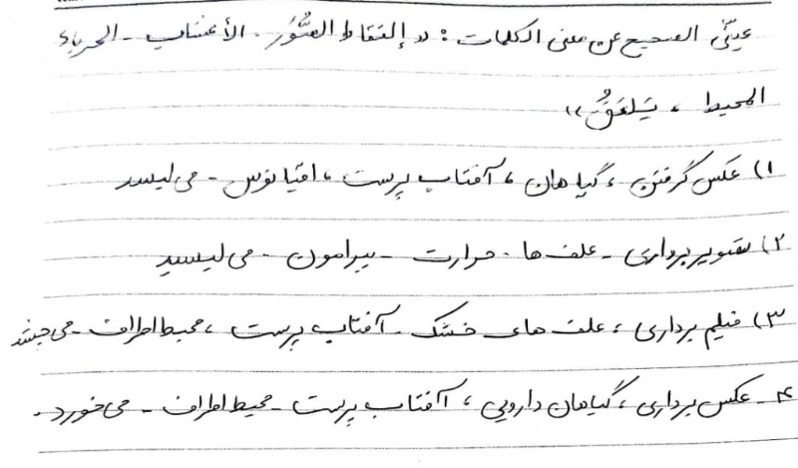 عیّن الصحیح عن معنی الکلمات: «إلتقاط الصُّوَر - الأعشاب - الحرباء
المحیط، یَلعَقُ»
۱) عکس گرفتن، گیاهان، آفتاب پرست، اقیانوس - می لیسد
۲) تصویربرداری - علف ها - حرارت - پیرامون - می لیسید
۳) فیلم برداری، علف های خشک - آفتاب پرست، محیط اطراف - می چشد
۴- عکس برداری، گیاهان دارویی، آفتاب پرست - محیط اطراف - می خورد.